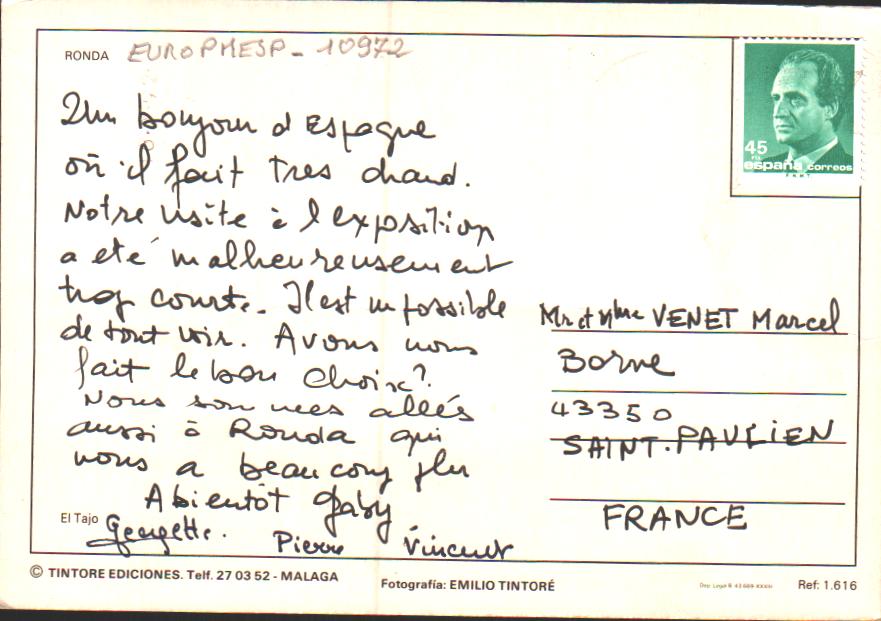 RONDA EUROPMESP - 10972
Un bonjour d Espagne
où il fait tres chaud.
Notre visite à l exposition
a eté malheureusement
trop courte. Il est impossible
de tout voir. Avons nous
fait le bon choix?
Nous sommes allés
aussi à Ronda qui
nous a beaucoup plu
A bientôt Gaby
El Tajo Georgette.
Pierre Vincent
45 PTA
españa correos
F N M T
Mr et Mme VENET Marcel
Borne
43350
SAINT.PAULIEN
FRANCE
© TINTORE EDICIONES. Telf. 27 03 52 - MALAGA
Fotografía: EMILIO TINTORÉ
Dep. Legal B 43669-XXXIII
Ref: 1.616